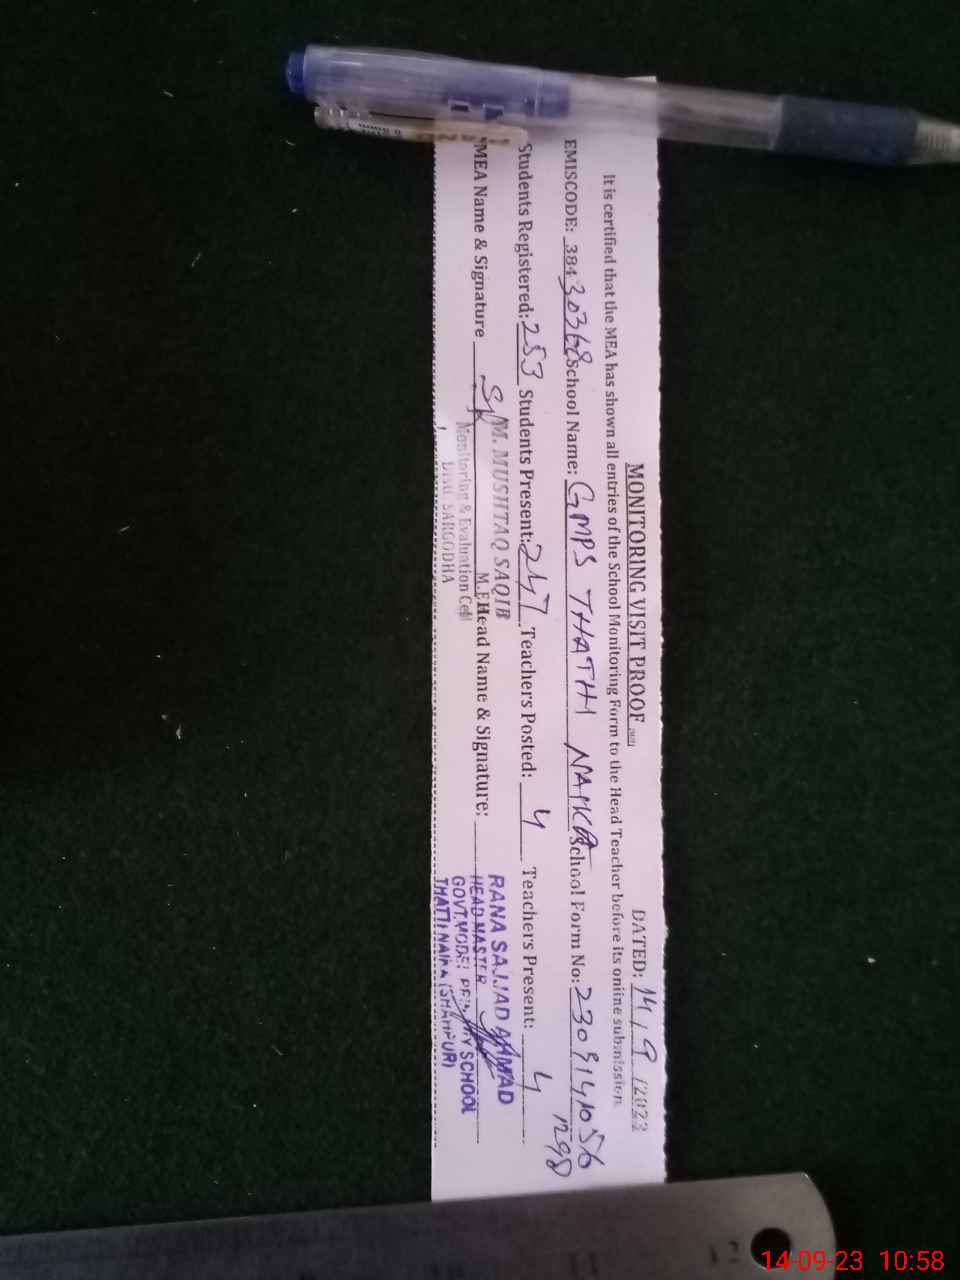 MONITORING VISIT PROOF
DATED: 14/9/2023
It is certified that the MEA has shown all entries of the School Monitoring Form to the Head Teacher before its online submission.
EMISCODE: 38430368 School Name: GMPS THATHI NAIKA School Form No: 2309141056
1298
Students Registered: 253 Students Present: 247 Teachers Posted: 4 Teachers Present: 4
MEA Name & Signature Head Name & Signature:
M. MUSHTAQ SAQIB
Monitoring & Evaluation Cell
Distt. SARGODHA
RANA SAJJAD AHMAD
HEAD MASTER
GOVT. MODEL PRIMARY SCHOOL
THATTI NAIKA (SHAHPUR)
12
14-09-23 10:58